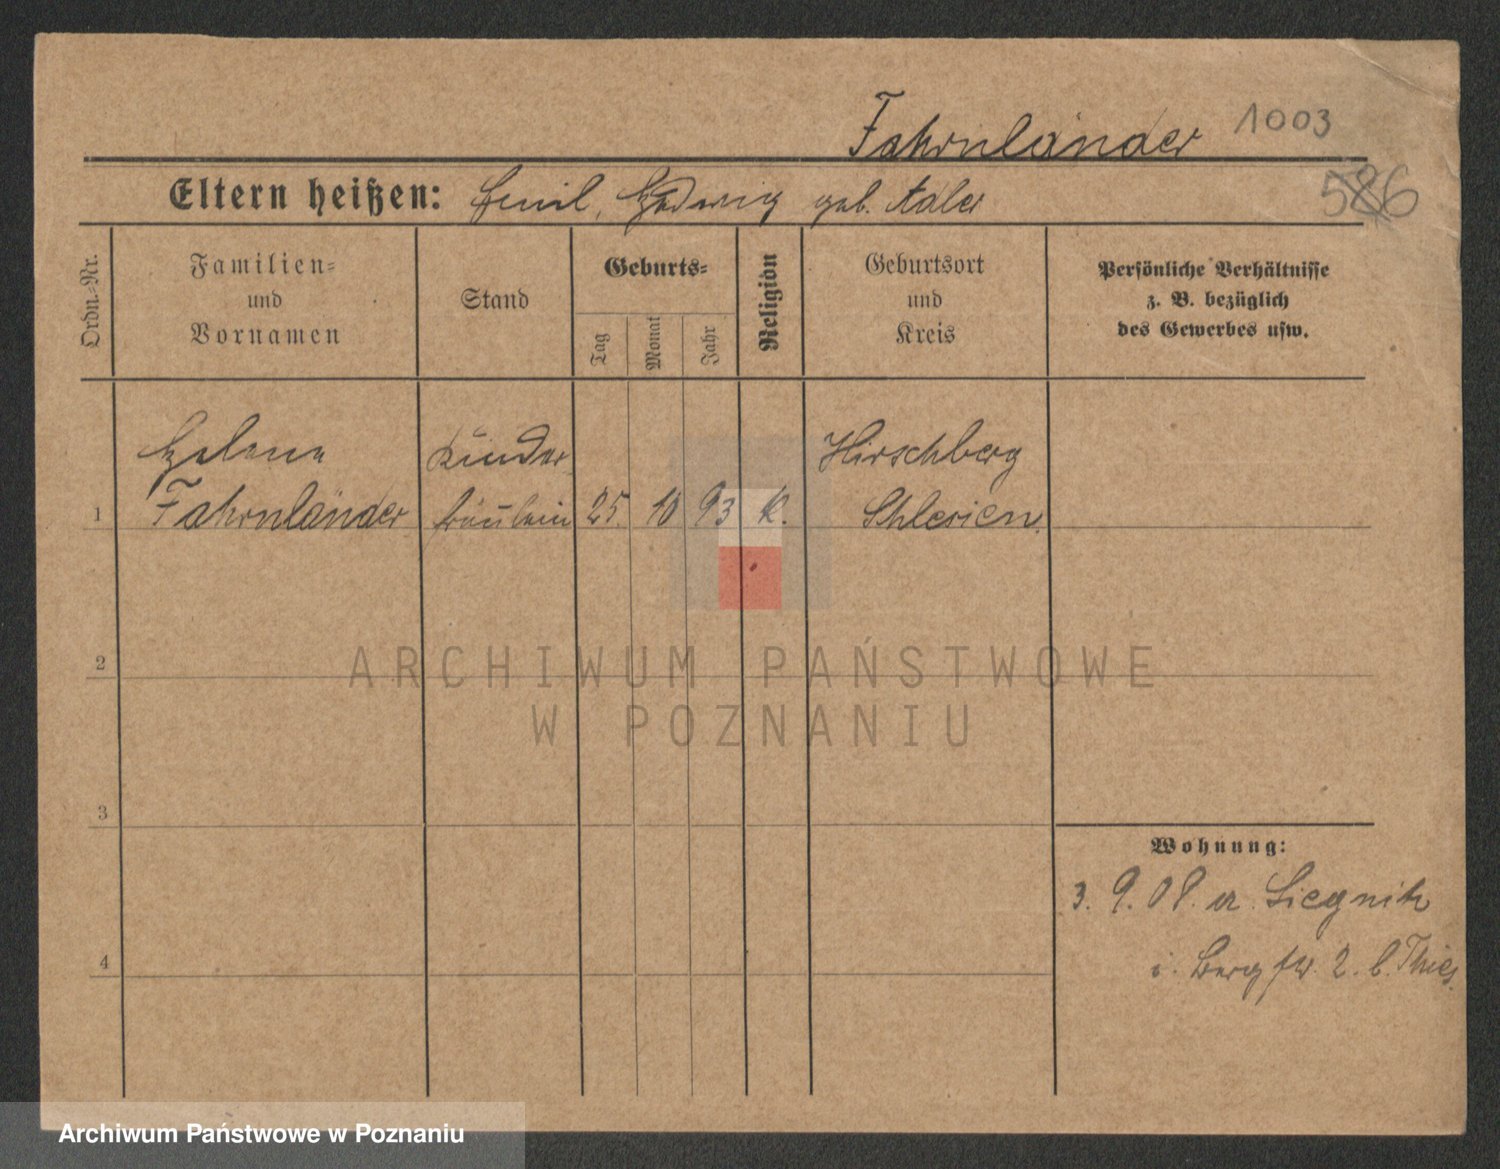 Fahrnländer 1003
Eltern heißen: Emil, Hedwig geb. Adler
586
Ordn.-Nr.
Familien-
und
Vornamen
Stand
Geburts-
Tag
Monat
Jahr
Religion
Geburtsort
und
Kreis
Persönliche Verhältnisse
z. B. bezüglich
des Gewerbes usw.
Helene Kinder Hirschberg
1 Fahrnländer fräulein 25. 10 93 k. Schlesien.
2
ARCHIWUM PAŃSTWOWE
W POZNANIU
3
Wohnung:
3. 9. 08. a. Liegnitz
4
i. Berg str. 2. b. Thies.
Archiwum Państwowe w Poznaniu